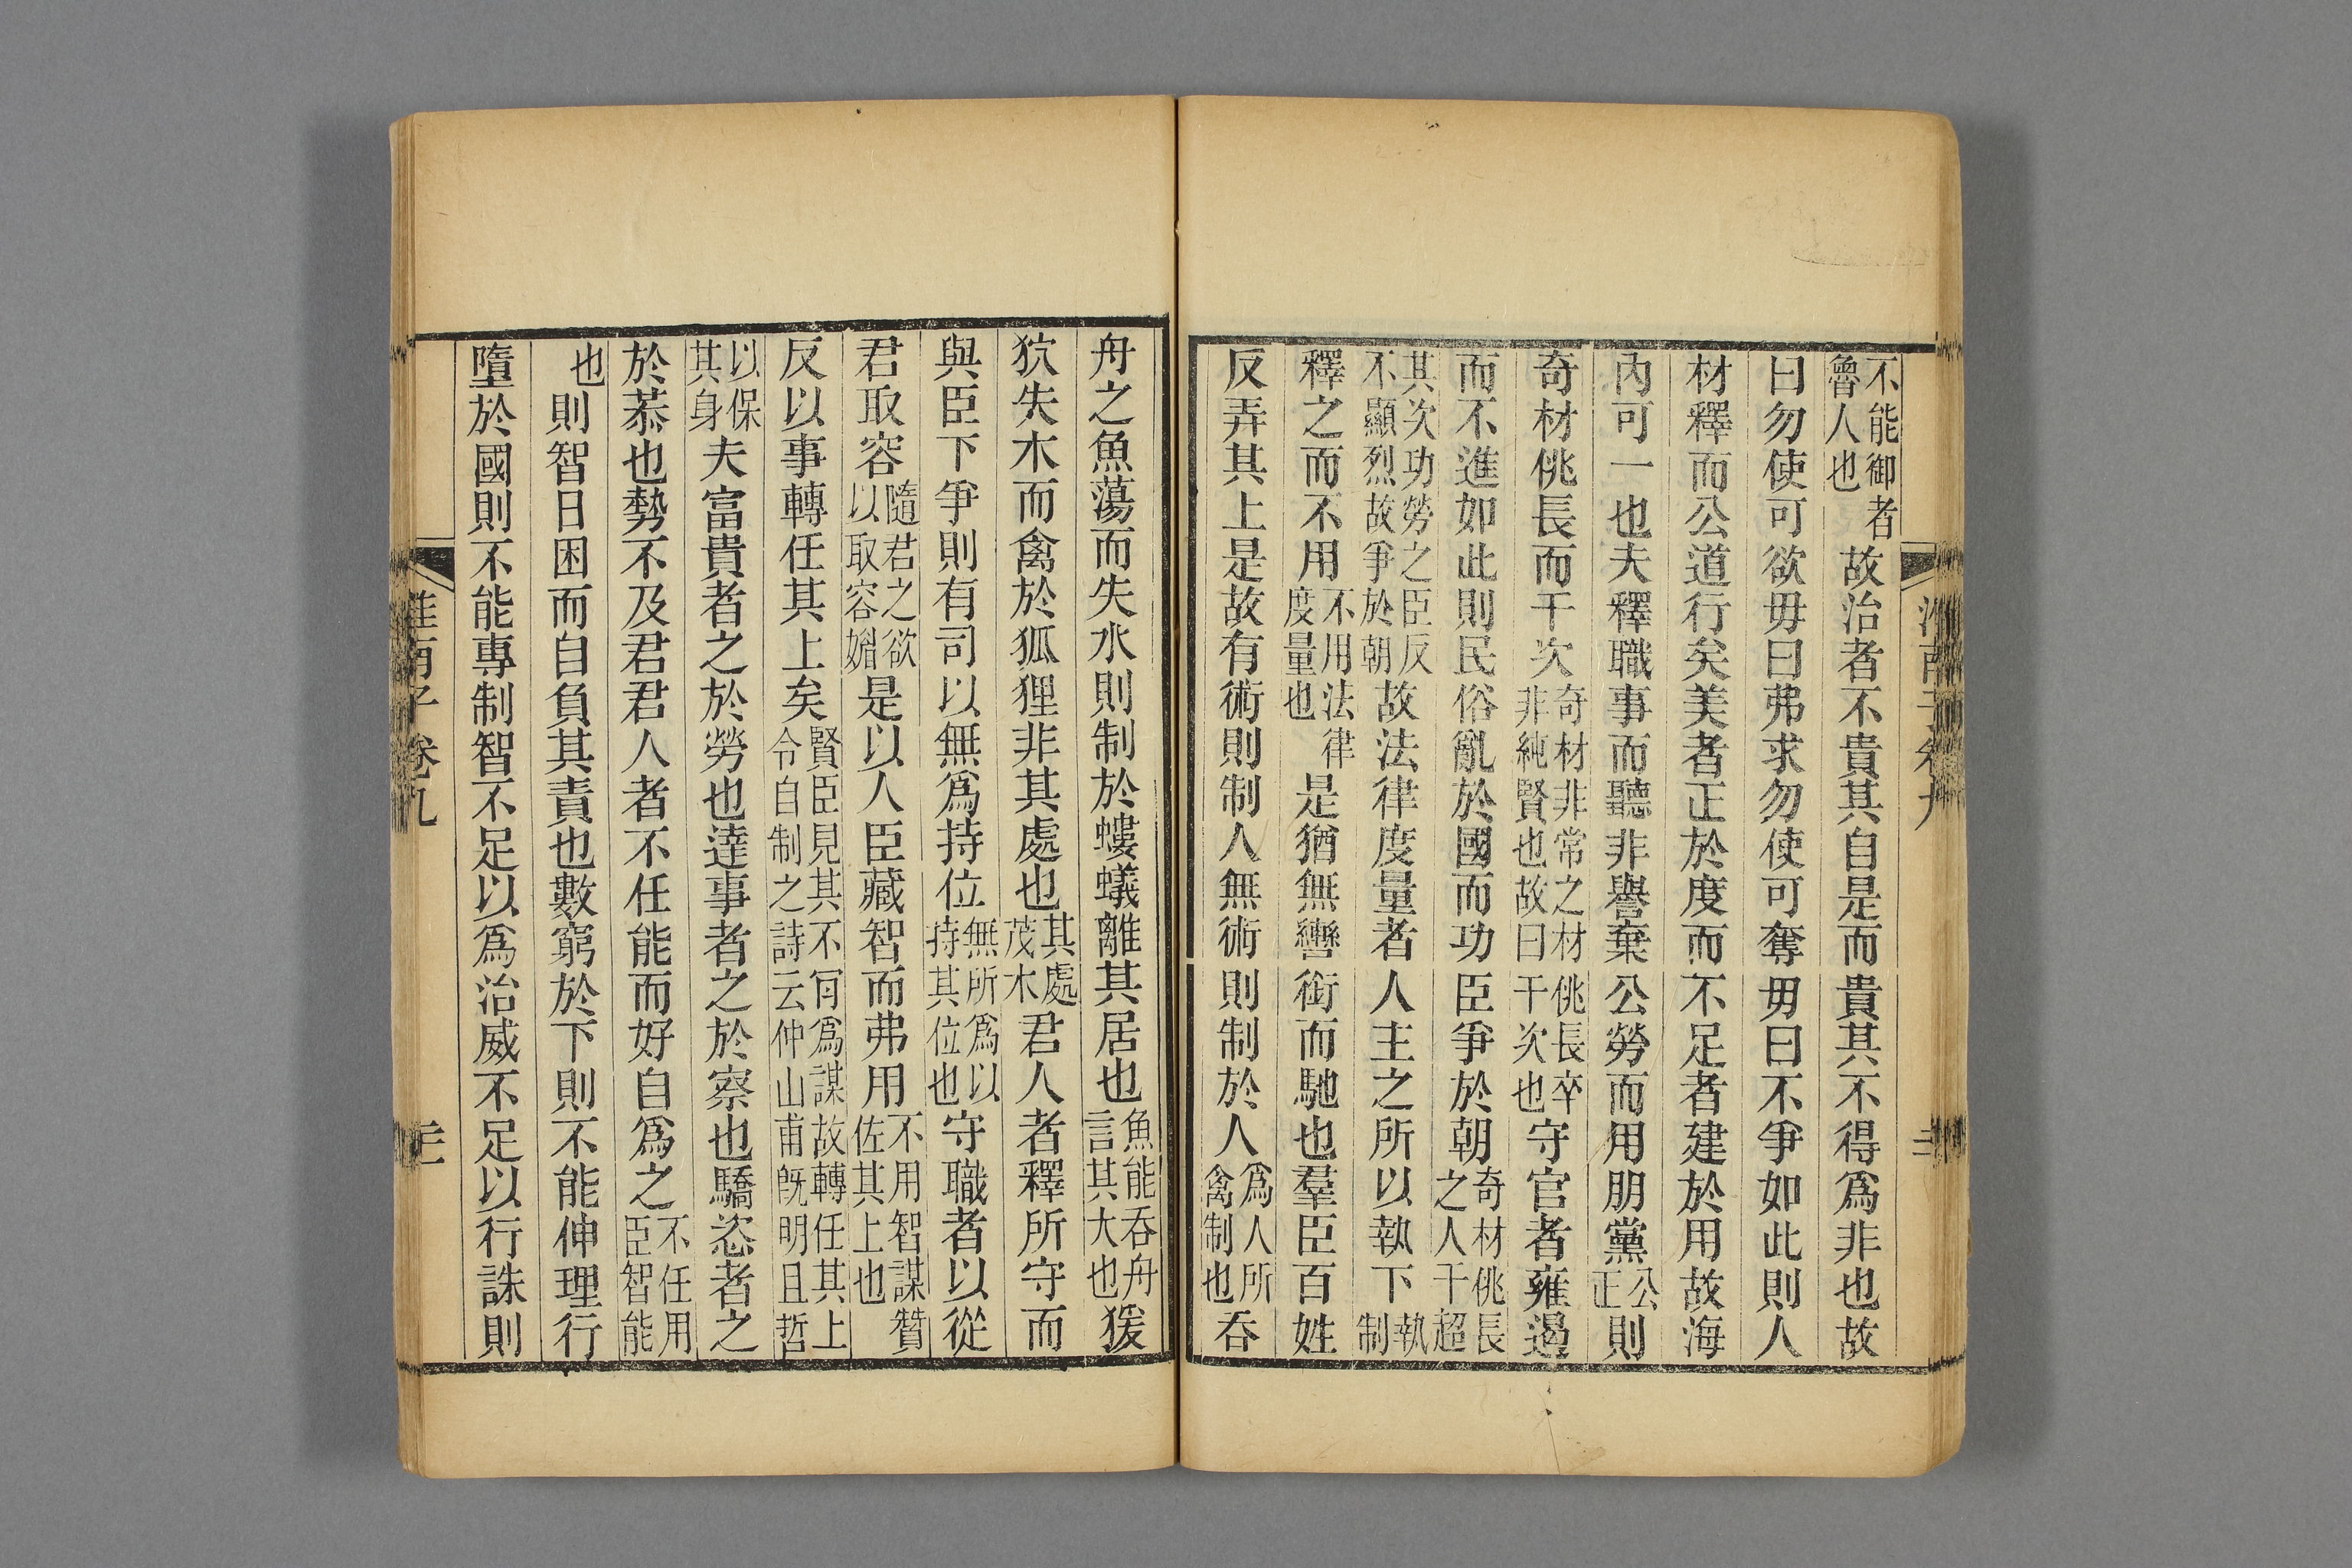 淮南子卷九
不能御者魯人也故治者不貴其自是而貴其不得爲非也故
曰勿使可欲毋曰弗求勿使可奪毋曰不爭如此則人
材釋而公道行矣美者正於度而不足者建於用故海
內可一也夫釋職事而聽非譽棄公勞而用朋黨公正則
奇材佻長而干次奇材非常之材佻長卒非純賢也故曰干次也守官者雍遏
而不進如此則民俗亂於國而功臣爭於朝奇材佻長之人干超
其次功勞之臣反不顯烈故爭於朝故法律度量者人主之所以執下執制
釋之而不用不用法律度量也是猶無轡銜而馳也羣臣百姓
反弄其上是故有術則制人無術則制於人爲人所禽制也吞
舟之魚蕩而失水則制於螻蟻離其居也魚能吞舟言其大也猨
狖失木而禽於狐狸非其處也其處茂木君人者釋所守而
與臣下爭則有司以無爲持位無所爲以持其位也守職者以從
君取容隨君之欲以取容媚是以人臣藏智而弗用不用智謀贊佐其上也
反以事轉任其上矣賢臣見其不肎爲謀故轉任其上令自制之詩云仲山甫旣明且哲
以保其身夫富貴者之於勞也達事者之於察也驕恣者之
於恭也勢不及君君人者不任能而好自爲之不任用臣智能
也則智日困而自負其責也數窮於下則不能伸理行
墮於國則不能專制智不足以爲治威不足以行誅則
淮南子卷九